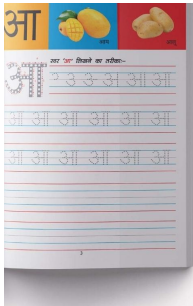 आ
आम
आलू
स्वर 'आ' लिखने का तरीका:-
आ
आ आ आ आ आ आ
आ आ आ आ आ आ
3